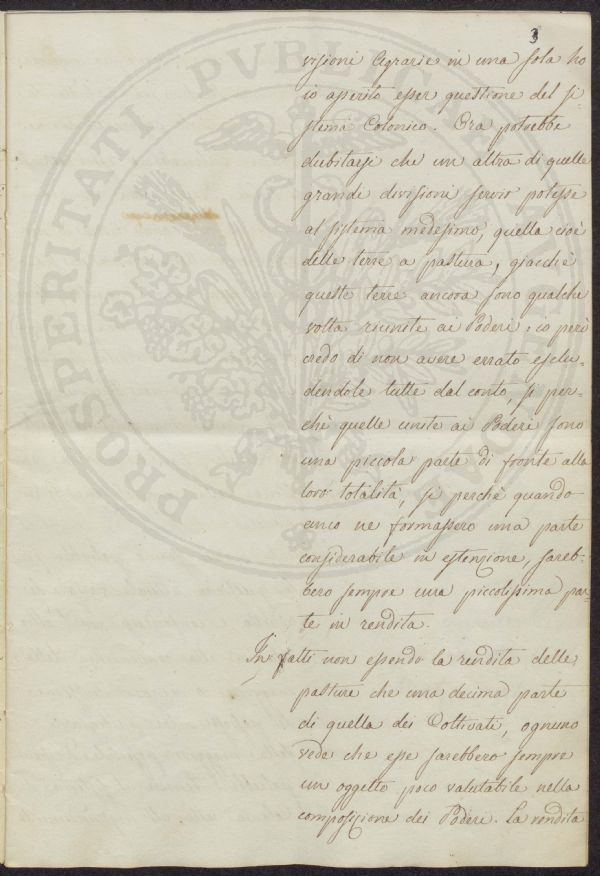 3
visioni Agrarie in una sola ho
io asserito esser questione del si-
stema Colonico. Ora potrebbe
dubitarsi che un altra di quelle
grandi divisioni servir potesse
al sistema medesimo, quella cioè
delle terre a pastura, giacchè
queste terre ancora sono qualche
volta riunite ai Poderi: io però
credo di non avere errato esclu-
dendole tutte dal conto, sì per-
chè quelle unite ai Poderi sono
una piccola parte di fronte alla
loro totalità, sì perchè quando
anco ne formassero una parte
considerabile in estenzione, sareb-
bero sempre una piccolissima par-
te in rendita.
In fatti non essendo la rendita delle
pasture che una decima parte
di quella dei Coltivati, ognuno
vede che esse sarebbero sempre
un oggetto poco valutabile nella
composizione dei Poderi. La rendita
PROSPERITATI PVBLICAE